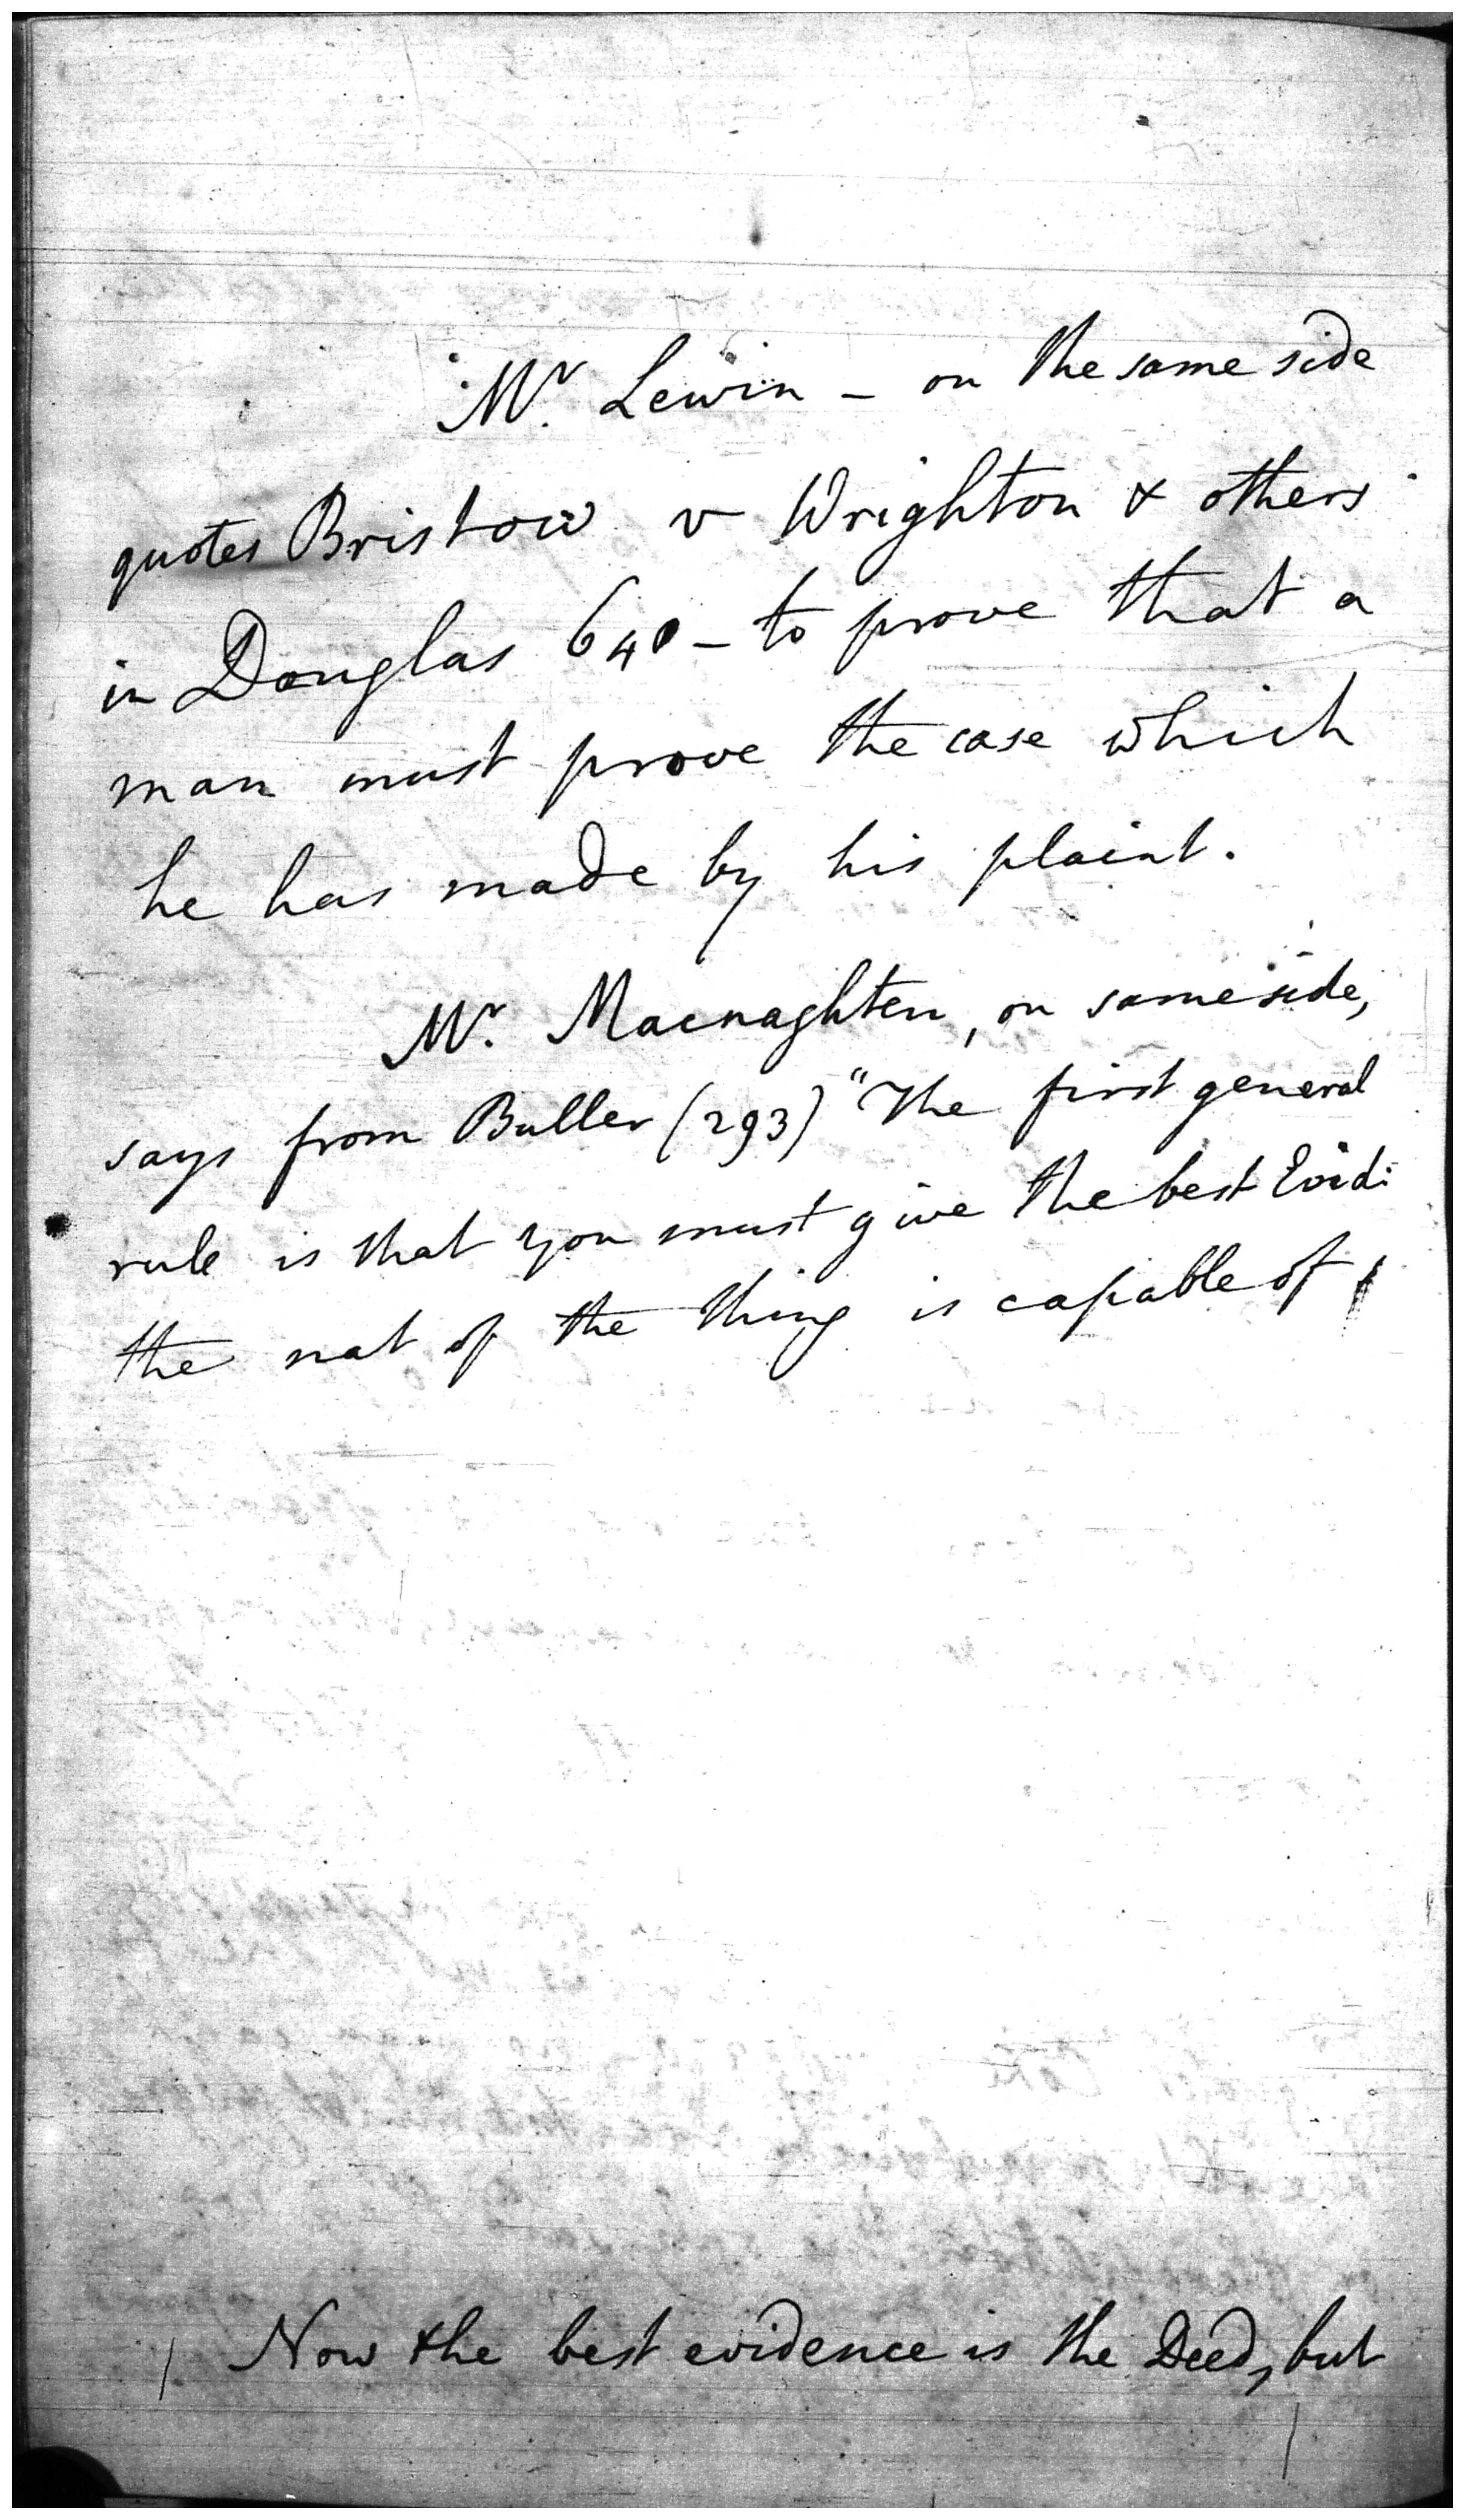 Mr. Lewin - on the same side
quotes Bristow v Wrighton & others
in Douglas 640 - to prove that a
man must prove the case which
he has made by his plaint.
Mr. Macnaghten, on same side,
says from Buller (293) "The first general
rule is that you must give the best Evid:
the nat of the thing is capable of
Now the best evidence is the Deed, but